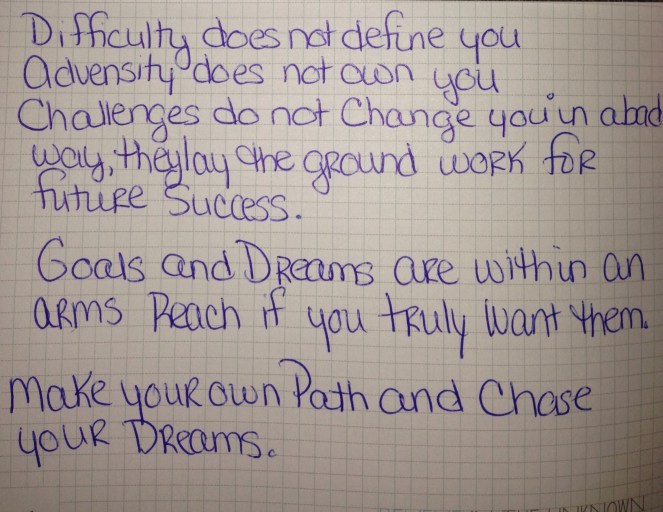 Difficulty does not define you
Adversity does not own you
Challenges do not Change you in a bad
way, they lay the ground work for
future Success.
Goals and Dreams are within an
arms Reach if you truly want them.
Make your own Path and Chase
your Dreams.
UNKNOWN